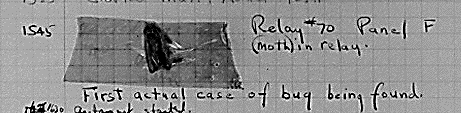 1545
Relay #70 Panel F
(Moth) in relay.
First actual case of bug being found.
started.